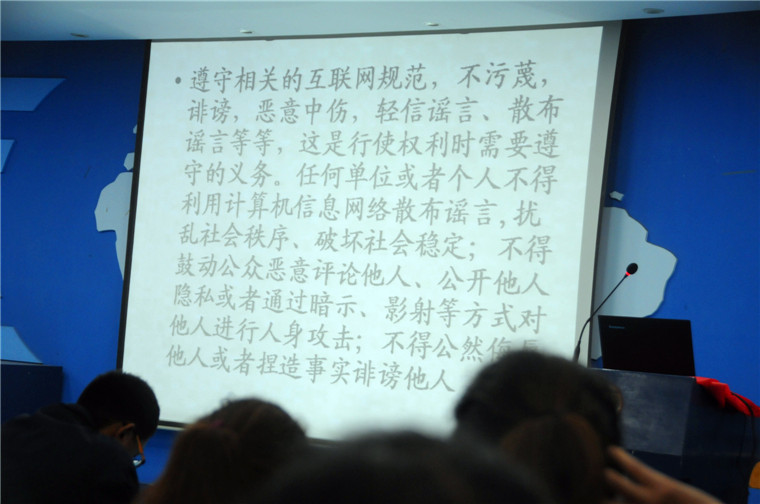 • 遵守相关的互联网规范，不污蔑，
诽谤，恶意中伤，轻信谣言、散布
谣言等等，这是行使权利时需要遵
守的义务。任何单位或者个人不得
利用计算机信息网络散布谣言，扰
乱社会秩序、破坏社会稳定；不得
鼓动公众恶意评论他人、公开他人
隐私或者通过暗示、影射等方式对
他人进行人身攻击；不得公然侮辱
他人或者捏造事实诽谤他人